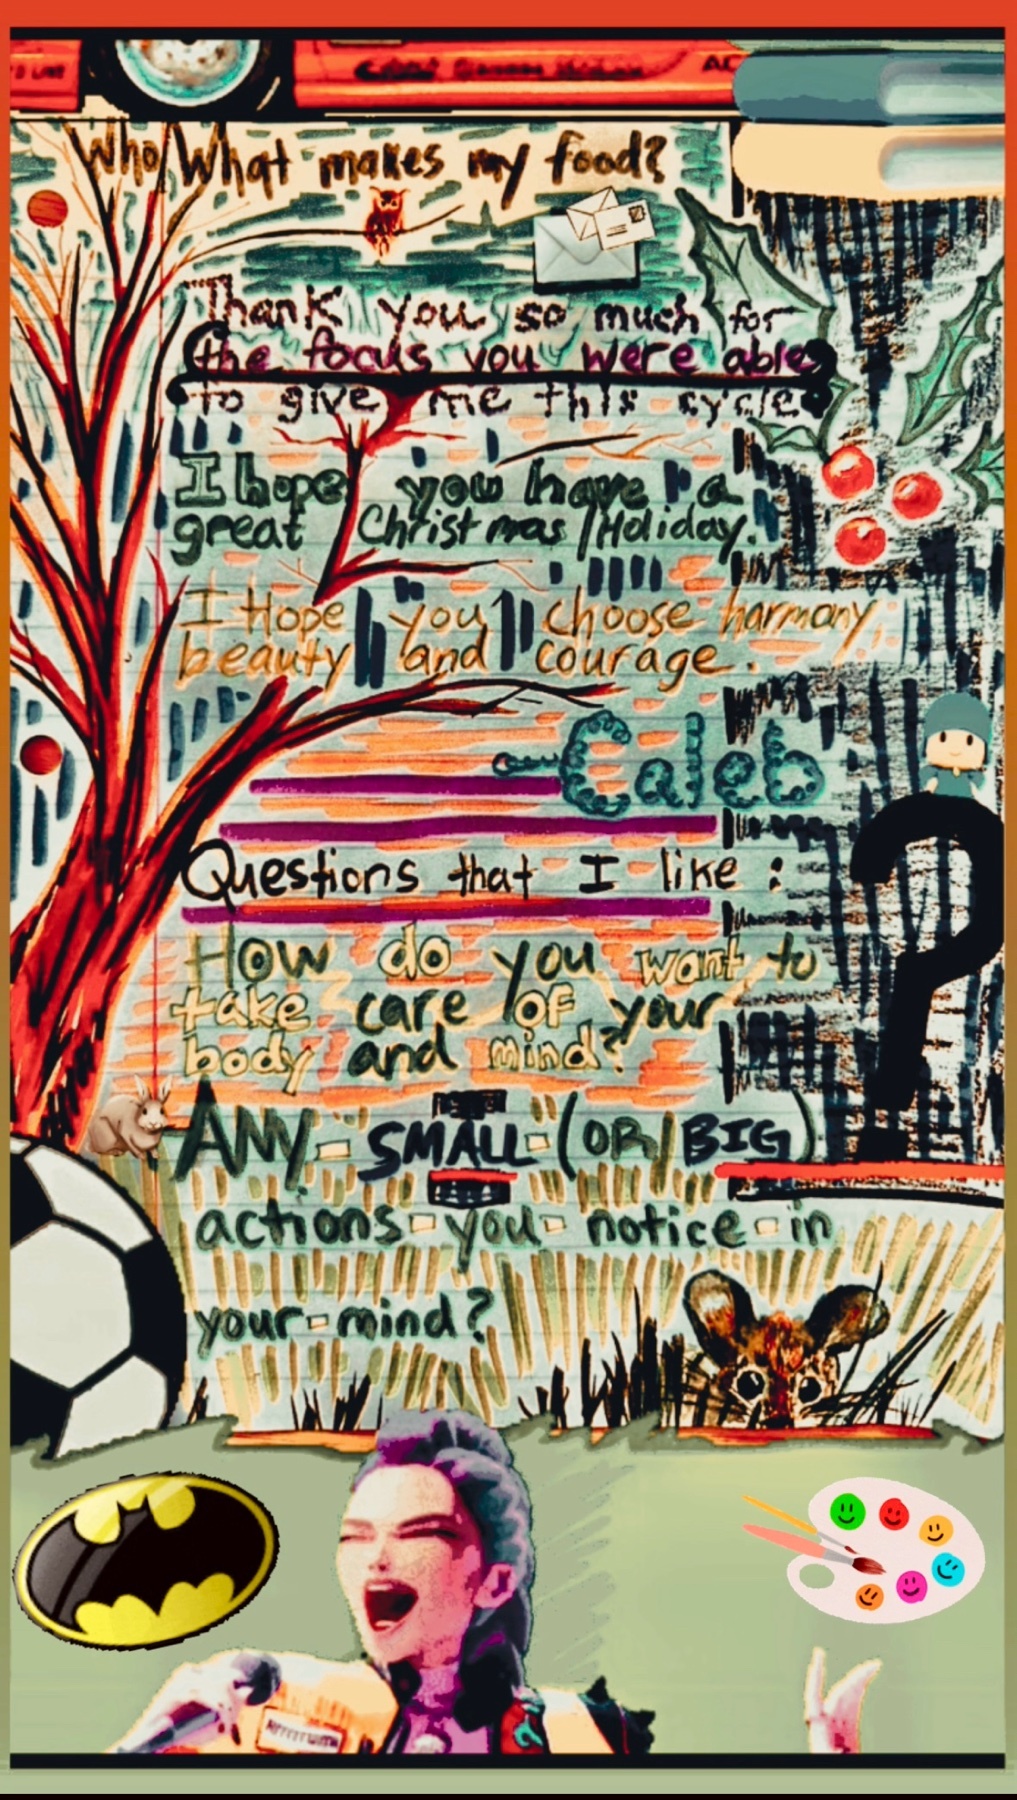 Who/What makes my food?
Thank you so much for
the focus you were able
to give me this cycle
I hope you have a
great Christmas/Holiday.
I Hope you choose harmony,
beauty and courage.
Caleb
Questions that I like:
How do you want to
take care of your
body and mind?
ANY SMALL (OR BIG)
actions you notice in
your mind?